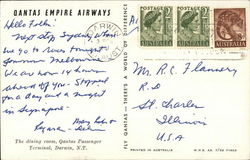 QANTAS EMPIRE AIRWAYS
Hello Folks!
Next stop Sydney, when
we go to
Melbourne
We are now 14 hours
ahead of you. Stopped
for a day and a night
in Singapore.
The dining room, Qantas Passenger
Terminal, Darwin, N.T.
FLY QANTAS—THERE'S A WORLD OF DIFFERENCE
AUSTRALIA
AUSTRALIA
AUSTRALIA
Mr. R. C. Flannery
R.D
St. Charles
Illinois
U.S.A
PRINTED IN AUSTRALIA